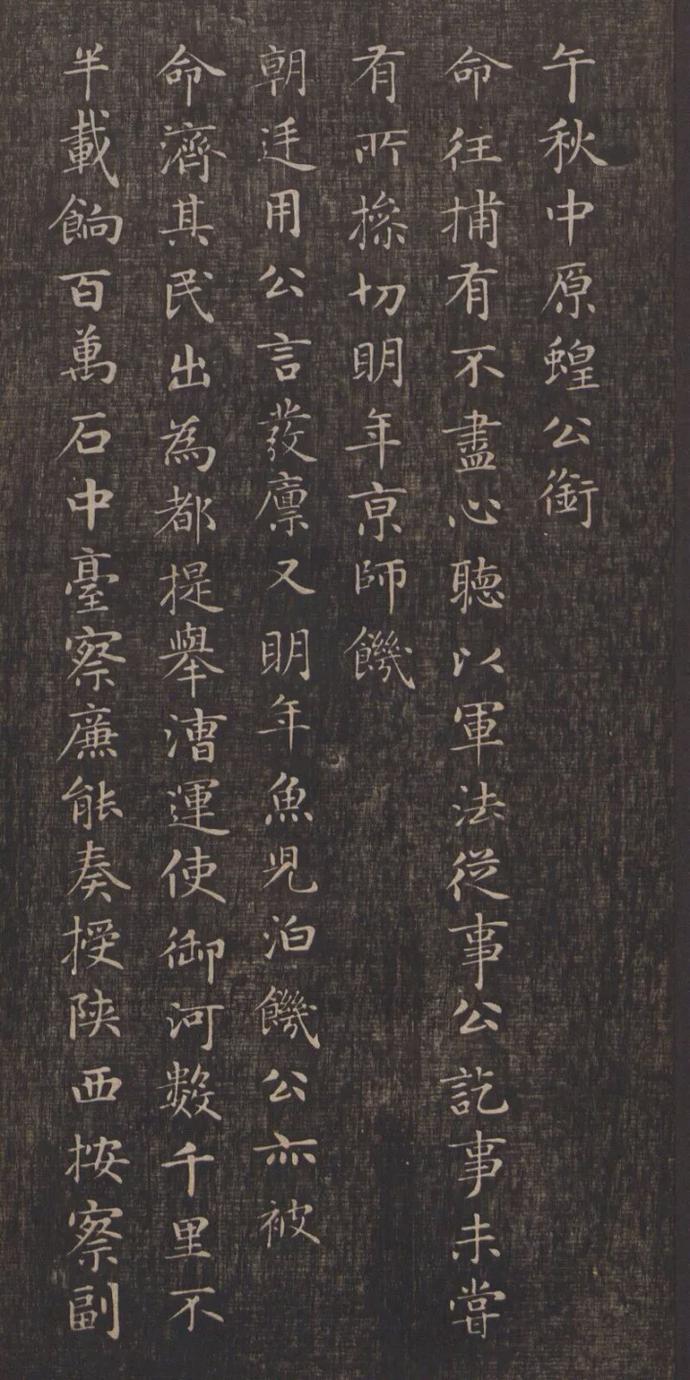 午秋中原蝗公銜
命往捕有不盡心聽以軍法從事公訖事未嘗
有所操切明年京師饑
朝廷用公言發廪又明年魚児泊饑公亦被
命濟其民出為都提舉漕運使御河數千里不
半載餉百萬石中臺察廉能奏授陝西按察副